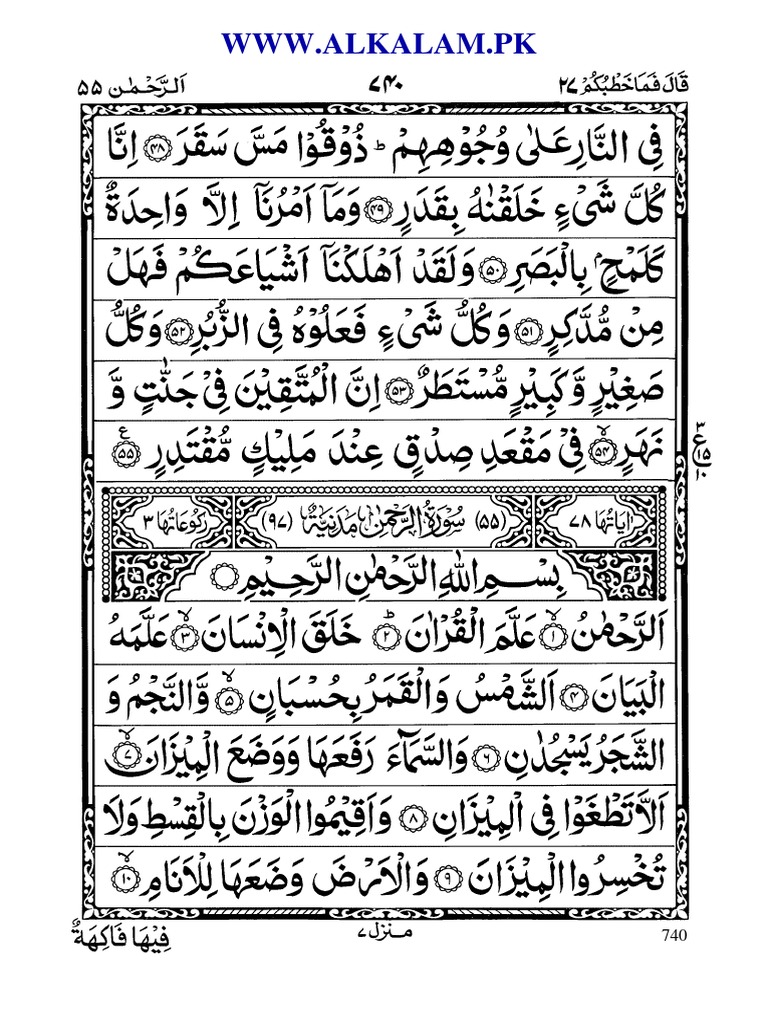 WWW.ALKALAM.PK
قَالَ فَمَا خَطْبُكُمْ ۲۷
۷۴۰
اَلرَّحْمٰن ۵۵
فِي النَّارِ عَلٰى وُجُوْهِهِمْ ؕ ذُوْقُوْا مَسَّ سَقَرَ ﴿۴۸﴾ اِنَّا
كُلَّ شَیْءٍ خَلَقْنٰهُ بِقَدَرٍ ﴿۴۹﴾ وَمَآ اَمْرُنَآ اِلَّا وَاحِدَةٌ
كَلَمْحٍۭ بِالْبَصَرِ ﴿۵۰﴾ وَلَقَدْ اَهْلَكْنَآ اَشْيَاعَكُمْ فَهَلْ
مِنْ مُّدَّكِرٍ ﴿۵۱﴾ وَكُلُّ شَیْءٍ فَعَلُوْهُ فِي الزُّبُرِ ﴿۵۲﴾ وَكُلُّ
صَغِيْرٍ وَّكَبِيْرٍ مُّسْتَطَرٌ ﴿۵۳﴾ اِنَّ الْمُتَّقِيْنَ فِيْ جَنّٰتٍ وَّ
نَهَرٍ ﴿۵۴﴾ۙ فِيْ مَقْعَدِ صِدْقٍ عِنْدَ مَلِيْكٍ مُّقْتَدِرٍ ﴿۵۵﴾ؑ
۳
ع ۱۵
۱۰
اٰيَاتُهَا ۷۸
(۵۵) سُوْرَةُ الرَّحْمٰنِ مَدَنِيَّةٌ (۹۷)
رُكُوْعَاتُهَا ۳
بِسْمِ اللّٰهِ الرَّحْمٰنِ الرَّحِيْمِ
اَلرَّحْمٰنُ ﴿۱﴾ۙ عَلَّمَ الْقُرْاٰنَ ﴿۲﴾ؕ خَلَقَ الْاِنْسَانَ ﴿۳﴾ۙ عَلَّمَهُ
الْبَيَانَ ﴿۴﴾ اَلشَّمْسُ وَالْقَمَرُ بِحُسْبَانٍ ﴿۵﴾ۙ وَّالنَّجْمُ وَ
الشَّجَرُ يَسْجُدٰنِ ﴿۶﴾ وَالسَّمَآءَ رَفَعَهَا وَوَضَعَ الْمِيْزَانَ ﴿۷﴾ۙ
اَلَّا تَطْغَوْا فِي الْمِيْزَانِ ﴿۸﴾ وَاَقِيْمُوا الْوَزْنَ بِالْقِسْطِ وَلَا
تُخْسِرُوا الْمِيْزَانَ ﴿۹﴾ وَالْاَرْضَ وَضَعَهَا لِلْاَنَامِ ﴿۱۰﴾ۙ
740
مـنزل ۷
فِيْهَا فَاكِهَةٌ